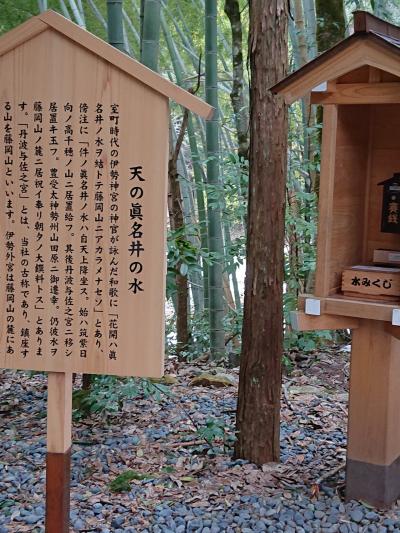 天の眞名井の水
室町時代の伊勢神宮の神官が詠んだ和歌に「花開ハ眞
名井ノ水ヲ結トテ藤岡山ニアカラメナセソ」とあり、
傍注に「件ノ眞名井ノ水ハ自天上降坐ス。始ハ筑紫日
向ノ高千穂ノ山ニ居置給フ。其後丹波与佐之宮ニ移シ
居置キ玉フ。豊受太神勢州山田原ニ御遷幸。仍彼水ヲ
藤岡山ノ麓ニ居祝イ奉り朝夕ノ大饌料トス」とありま
す。「丹波与佐之宮」とは、当社の古称であり、鎮座す
る山を藤岡山といいます。伊勢外宮は藤岡山の麓にあ
水みくじ